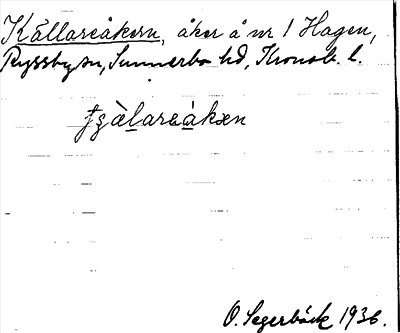 Källareåkern, åker å nr 1 Hagen,
Ryssby sn, Sunnerbo hd, Kronob. l.
O. Segerbäck 1936.